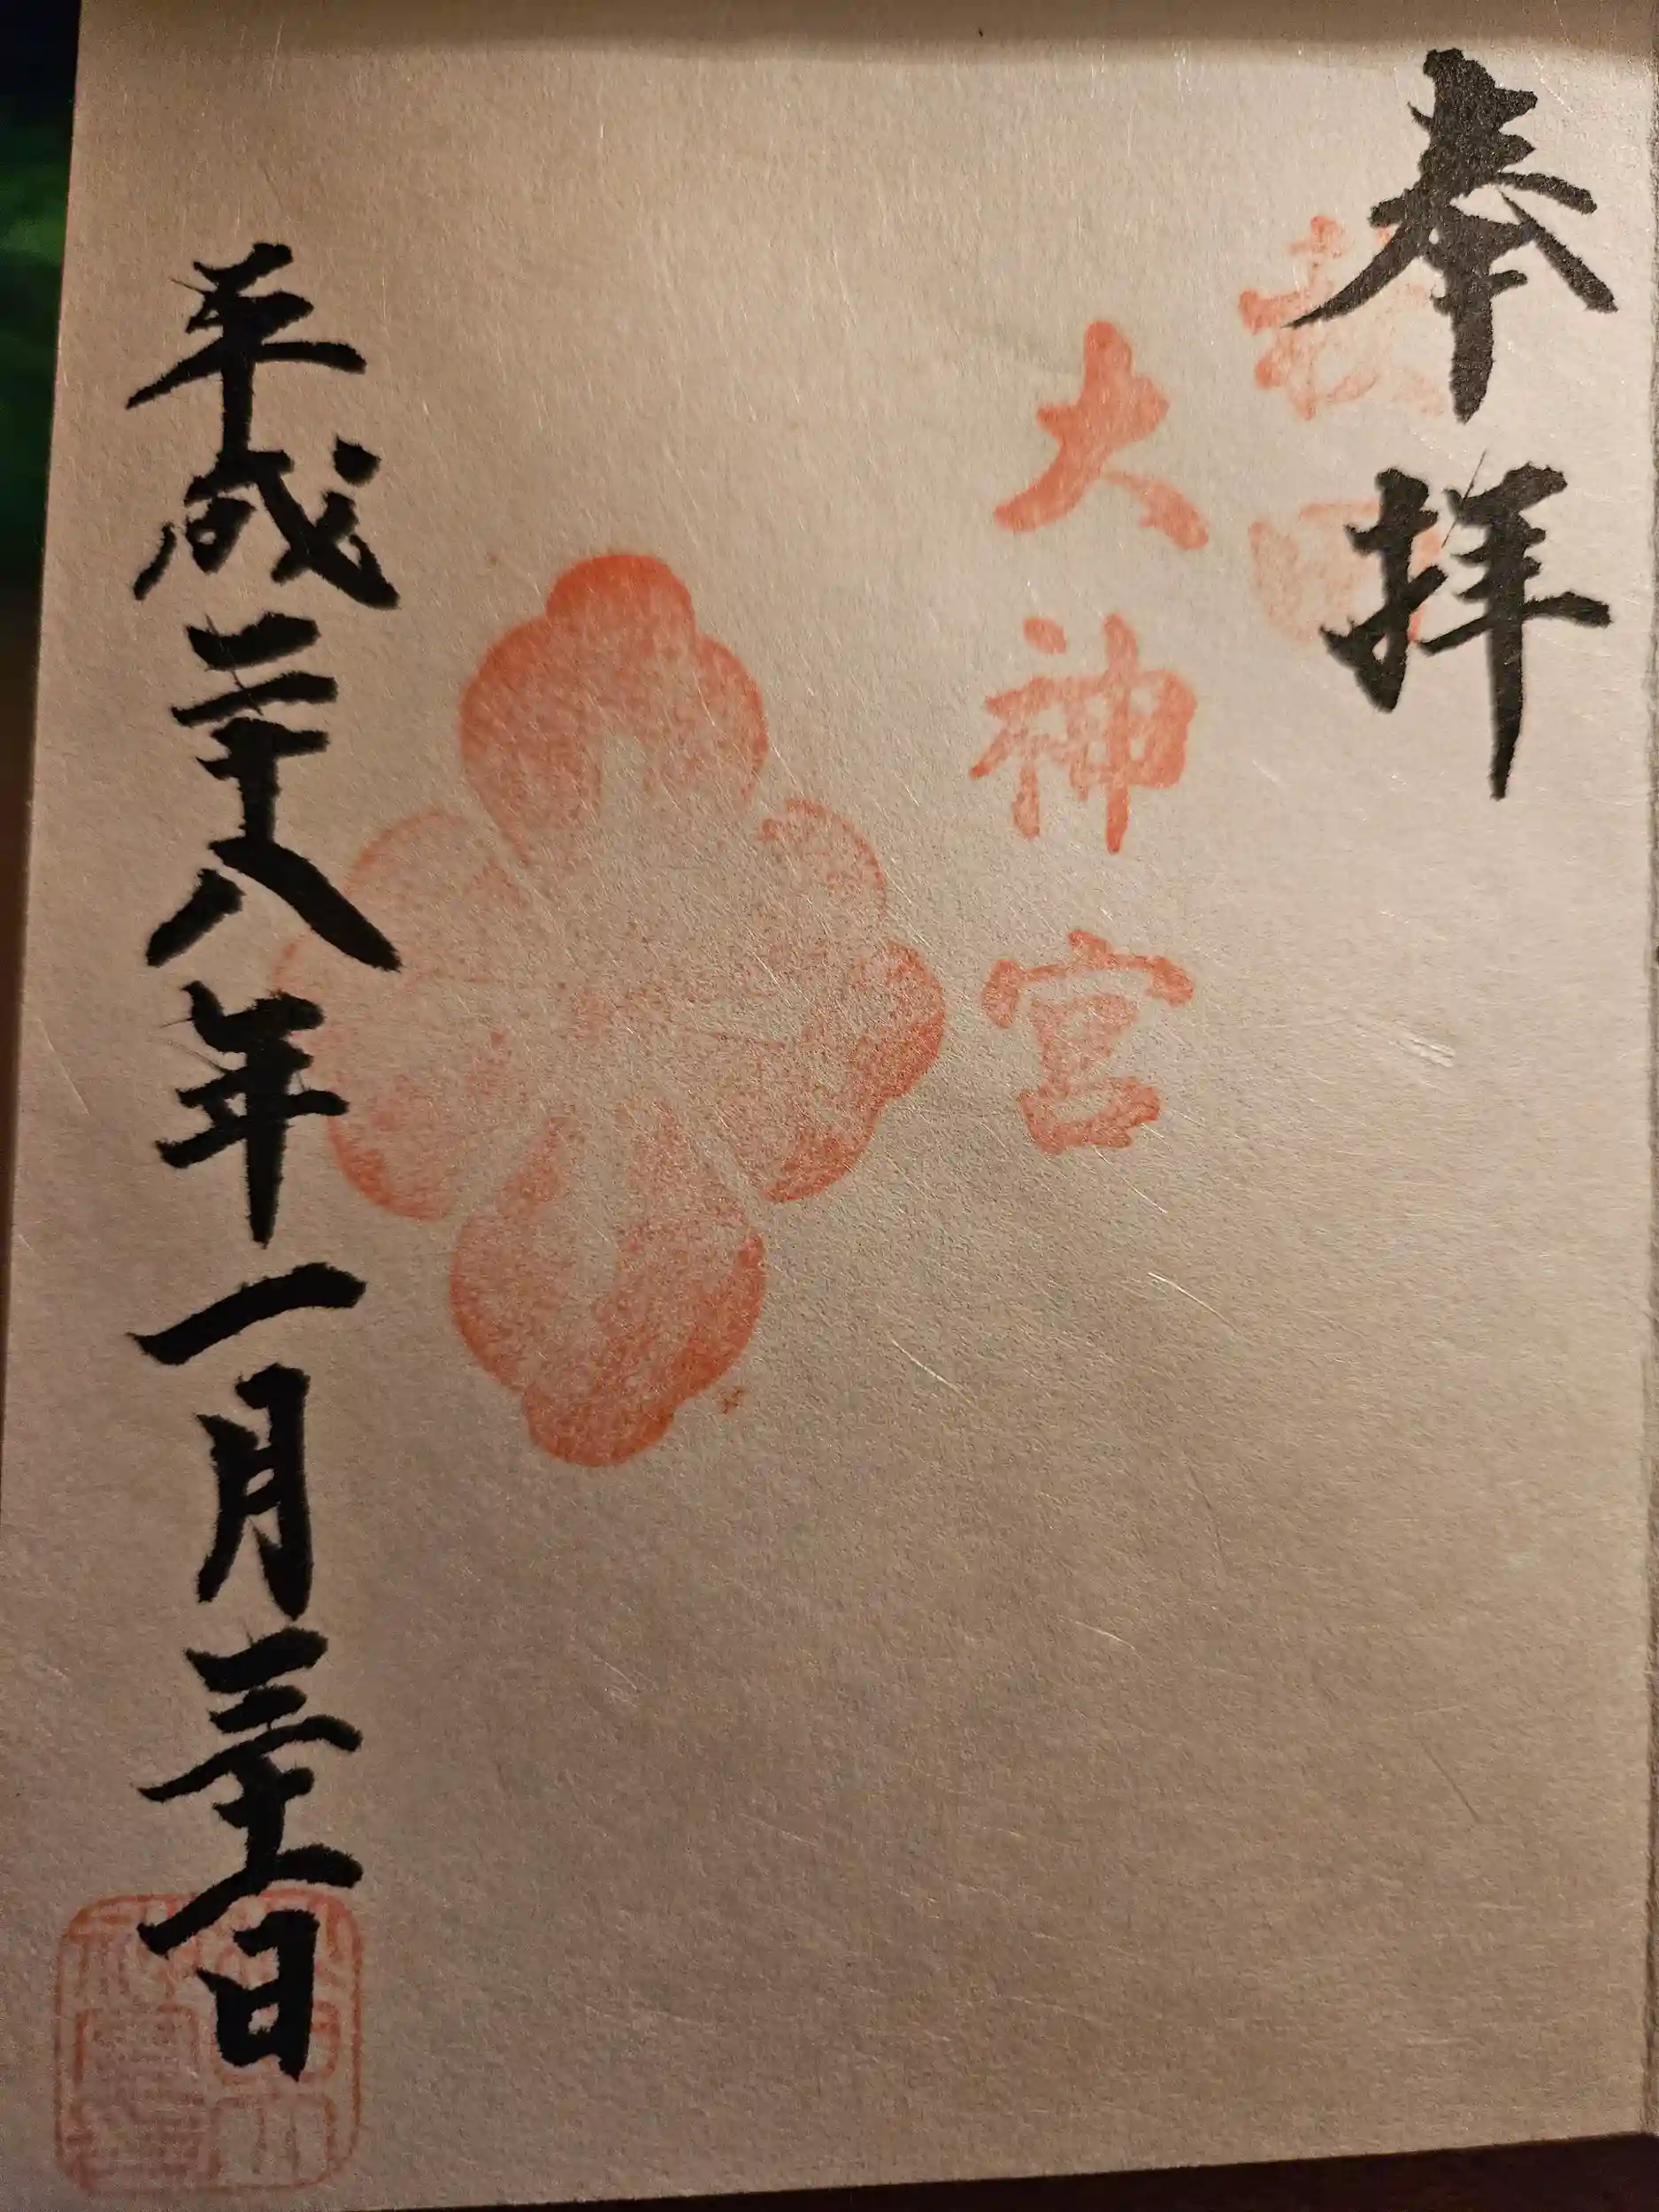 奉拝
大神宮
平成二十八年一月三十一日